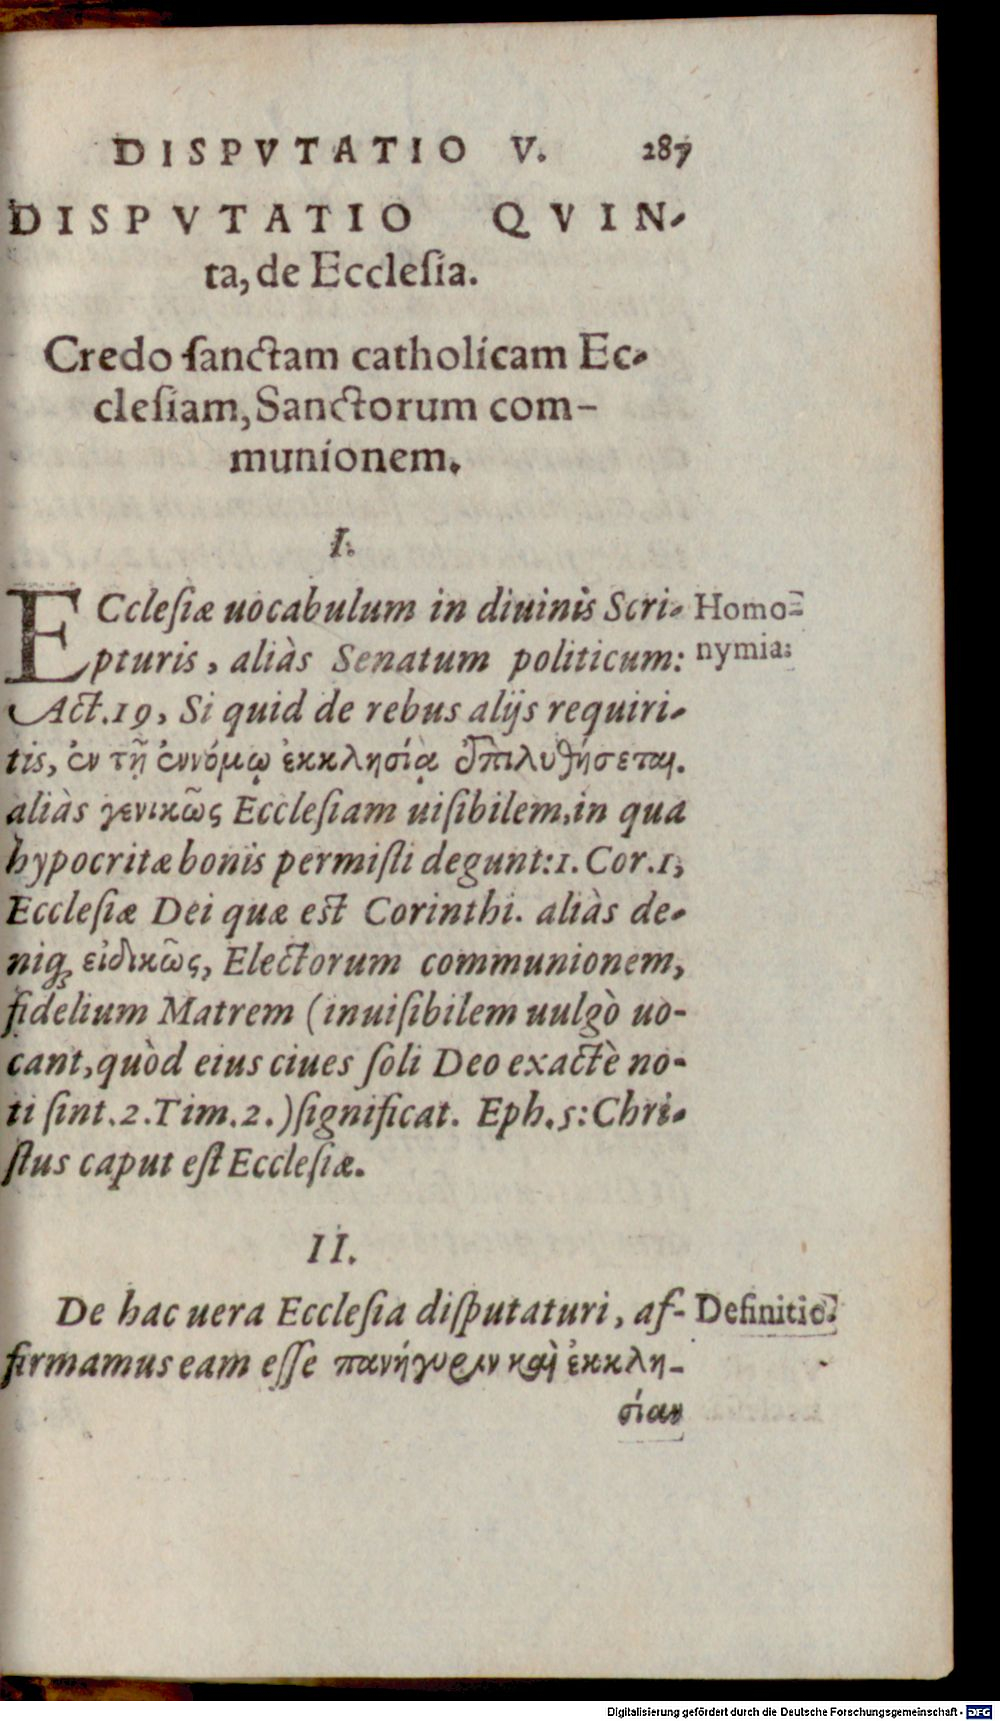 DISPVTATIO V. 287
DISPVTATIO QVIN-
ta, de Ecclesia.
Credo sanctam catholicam Ec-
clesiam, Sanctorum com-
munionem.
I.
ECclesiæ uocabulum in diuinis Scri-
Homo-
pturis, aliàs Senatum politicum:
nymia:
Act. 19, Si quid de rebus alijs requiri-
tis, ἐν τῇ ἐννόμῳ ἐκκλησίᾳ ἐπιλυθήσεται.
aliàs γενικῶς Ecclesiam uisibilem, in qua
hypocritæ bonis permisti degunt: 1. Cor. 1,
Ecclesiæ Dei quæ est Corinthi. aliàs de-
niq; εἰδικῶς, Electorum communionem,
fidelium Matrem (inuisibilem uulgò uo-
cant, quòd eius ciues soli Deo exactè no-
ti sint. 2. Tim. 2.) significat. Eph. 5: Chri-
stus caput est Ecclesiæ.
II.
De hac uera Ecclesia disputaturi, af-
Definitio.
firmamus eam esse πανήγυριν καὶ ἐκκλη-
σίαν
Digitalisierung gefördert durch die Deutsche Forschungsgemeinschaft - DFG